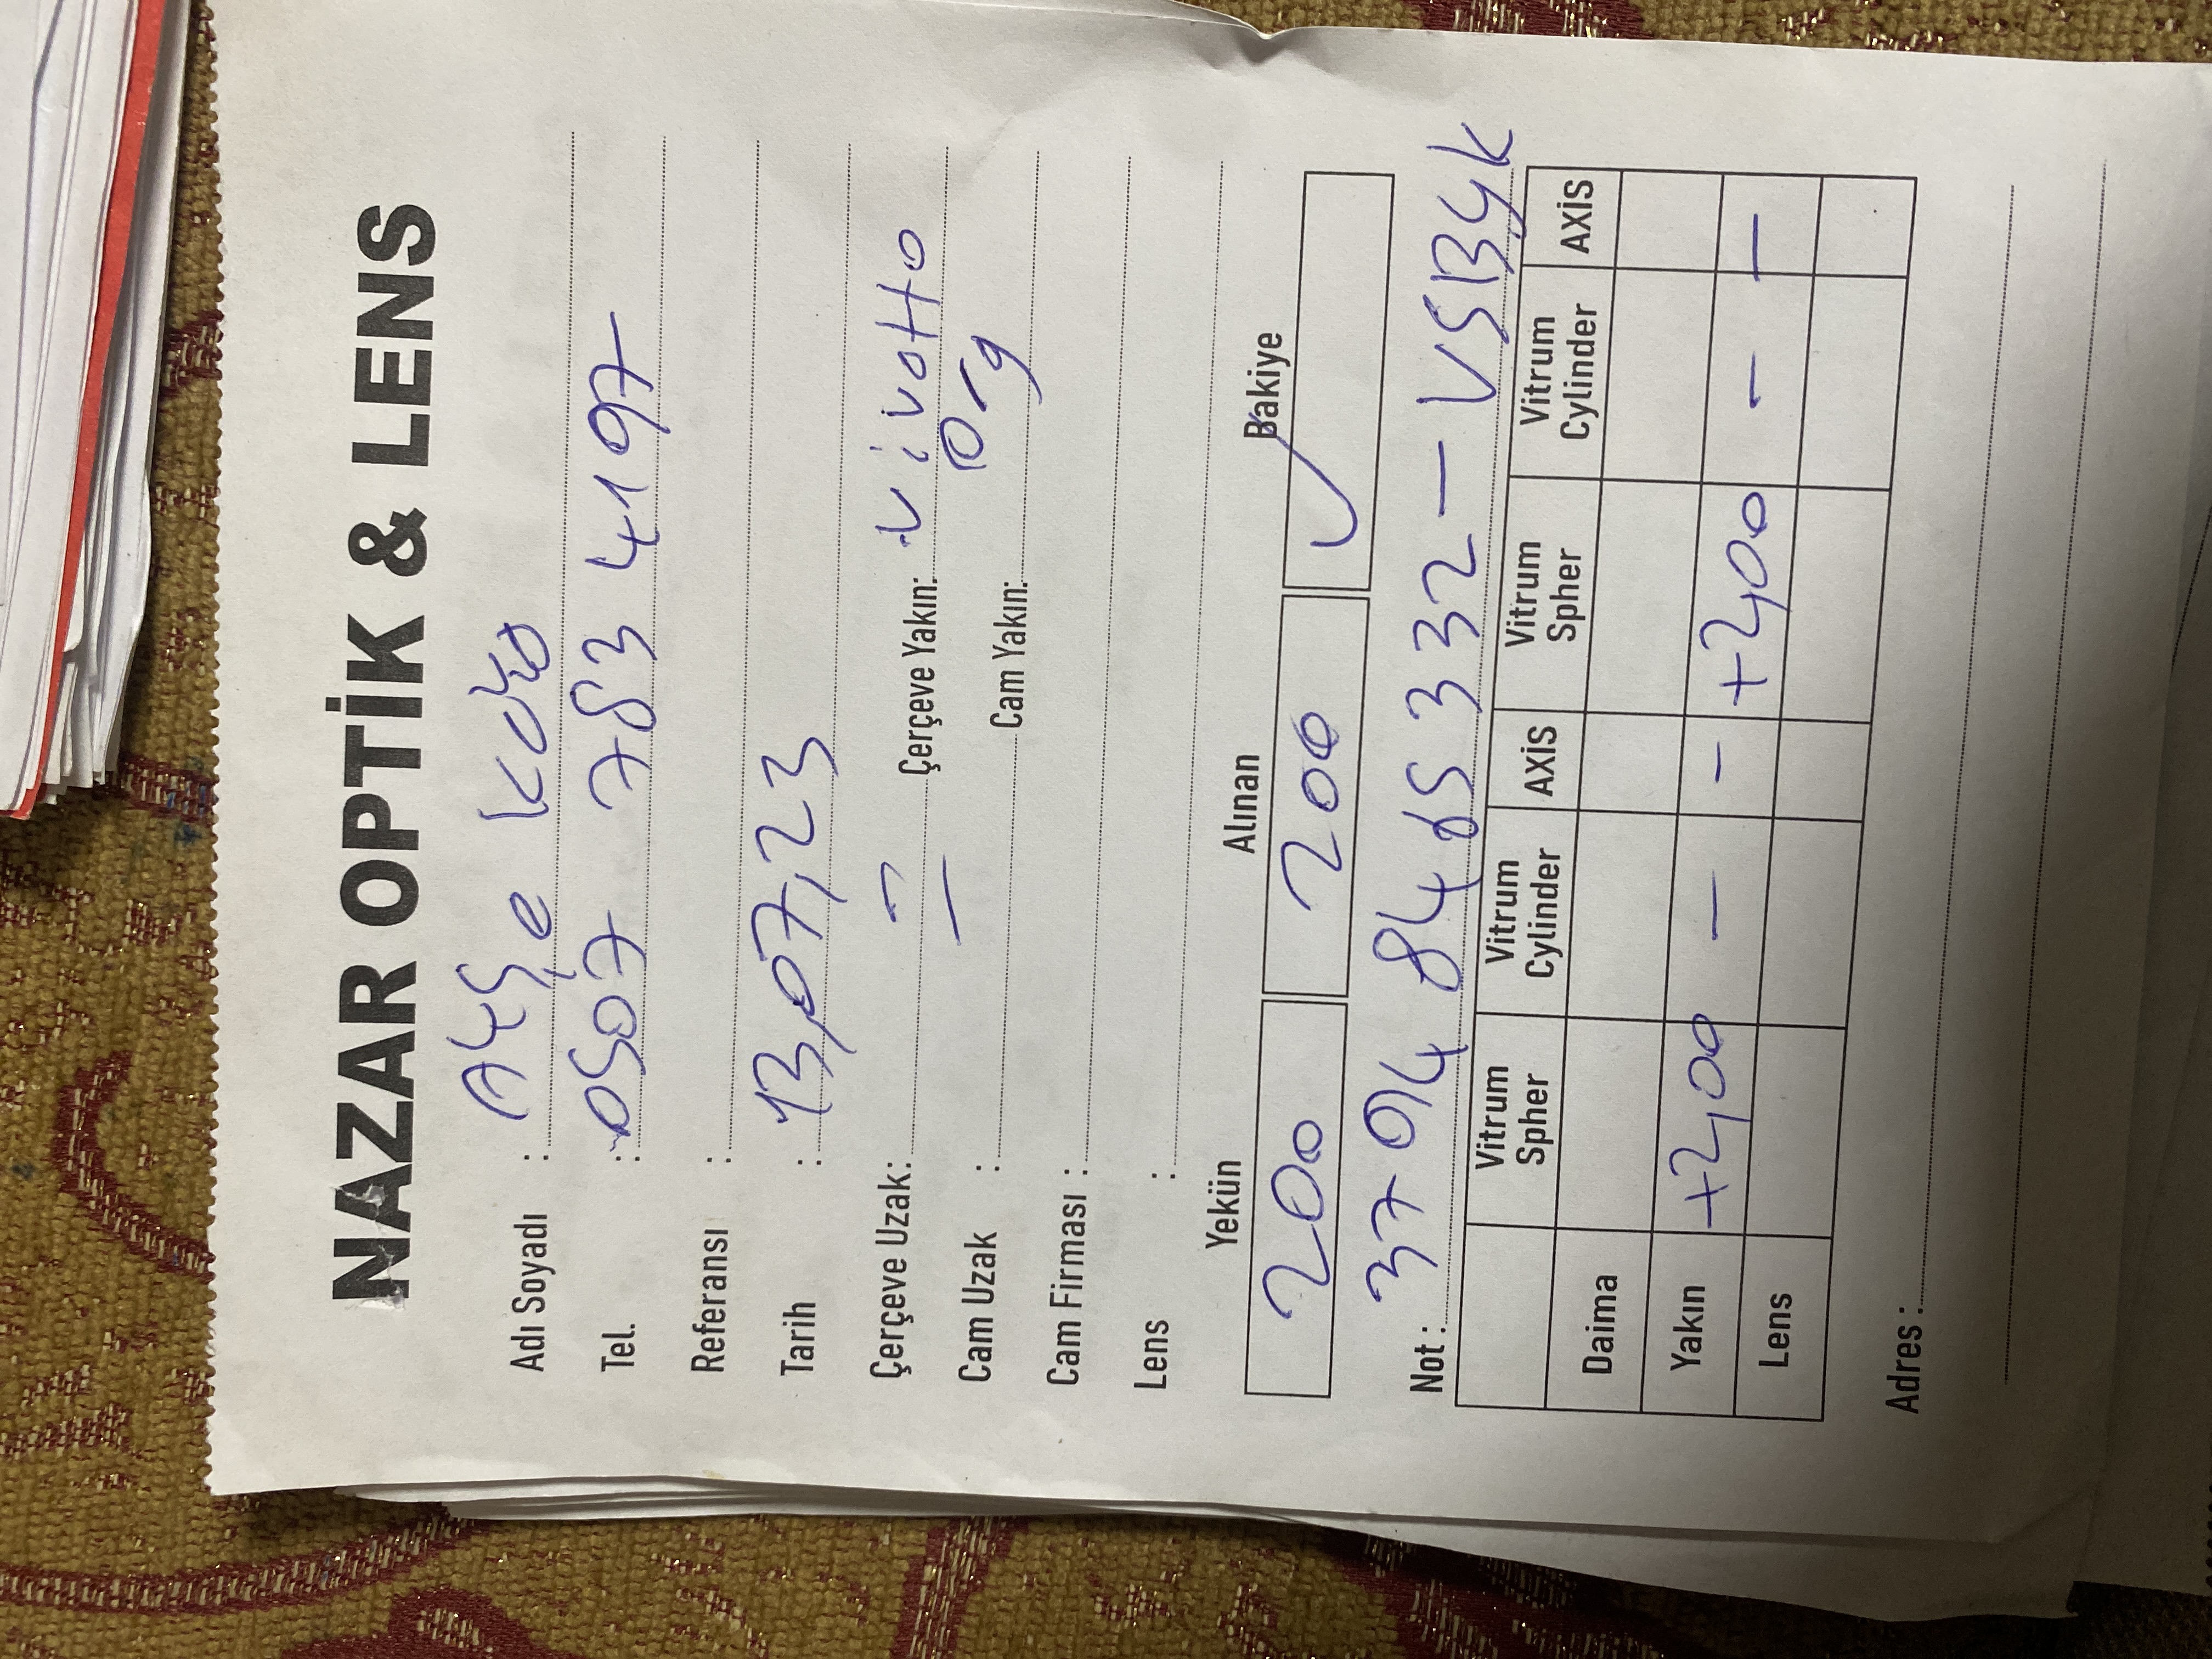 NAZAR OPTİK & LENS
Adı Soyadı : Ayşe
Tel. : 0507 783 4197
Referansı :
Tarih : 13,07,23
Çerçeve Uzak: — Çerçeve Yakın: Vivatto
Cam Uzak : — Cam Yakın: Org
Cam Firması :
Lens :
Yekün Alınan Bakiye
200 200 ✓
Not : 37 94 84 65 332 — VSBYK
Vitrum Spher Vitrum Cylinder AXİS Vitrum Spher Vitrum Cylinder AXİS
Daima
Yakın +2,00 — — +2,00 — —
Lens
Adres :